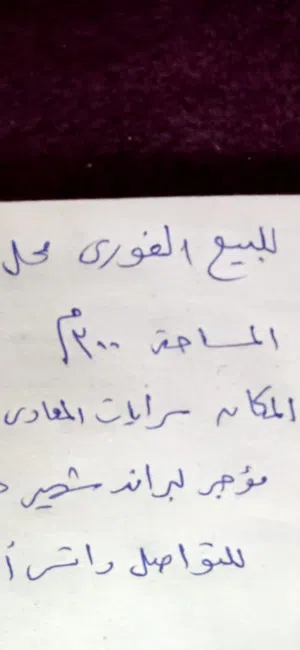 للبيع الفورى محل
المساحة ٣٠٠م
المكان سرايات المعادى
مؤجر لبراند شهير
للتواصل واتس